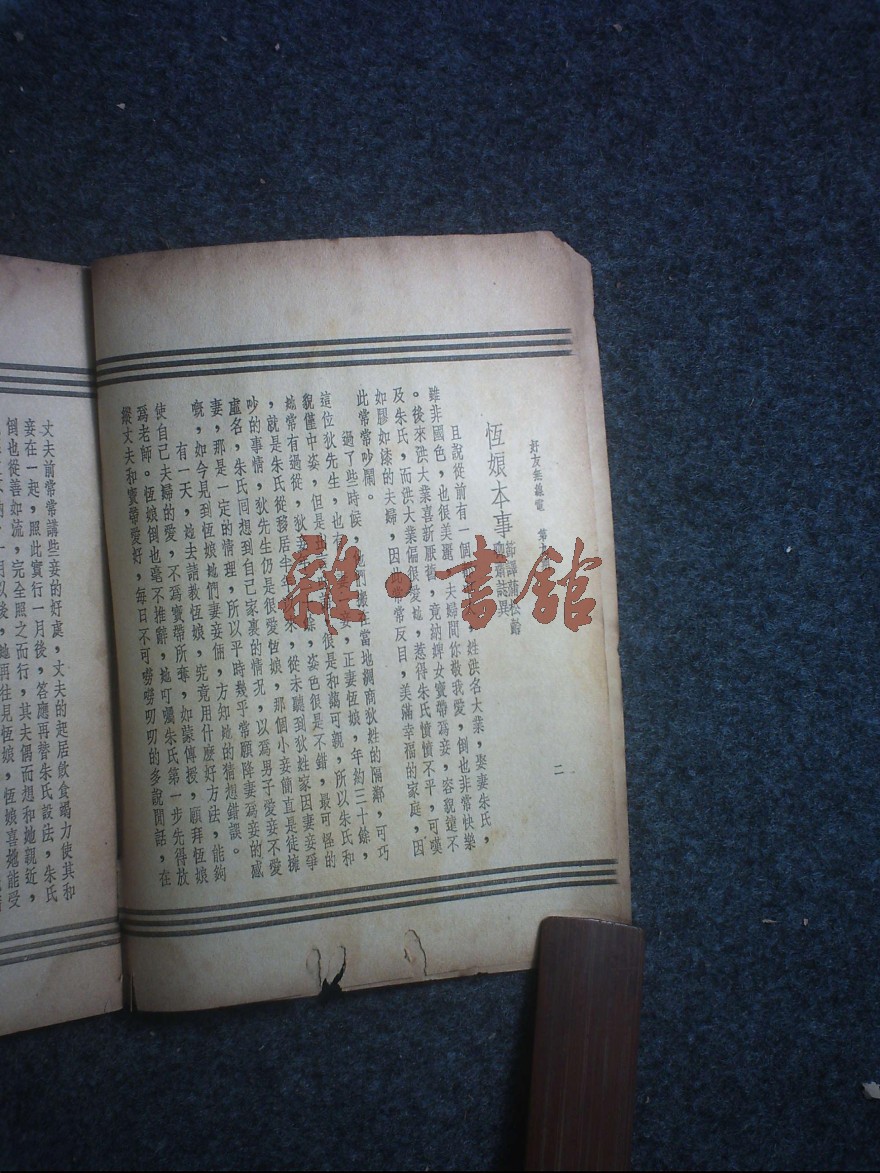 好友無線電 第
二
恆娘本事
節譯蒲松齡
聊齋誌異
且說從前有一個 姓洪名大業，娶妻朱氏，
雖非國色，也很美麗 夫婦間你敬我愛，倒也非常快樂
。後來洪大業喜新厭舊，竟納婢女寶帶為妾，容貌遠不
及朱氏，而洪大業偏很愛她，惹得朱氏憤憤不平，可嘆
如膠如漆的夫婦，因此常常反目，美滿幸福的家庭，因
此常常吵鬧。
過了些時候，他們搬在當地綢商狄姓的隔鄰，可巧
這位狄先生，也有 妾，正妻恆娘，年約三十餘，
貌僅中姿，但是 很是和藹可親，所以朱氏和
她常有過從，狄 餘，姿色很是不錯，最可怪的
，就是朱氏從移居 來，從未聽到狄姓家因妻妾爭
吵的事情，狄先生仍是很愛恆娘，那個小妾簡直是徒擁
虛名，朱氏回想到自己家裏的情況，以為男子愛妾不愛
妻，那是一定的情理，所以平時幾乎常願降妻為妾的感
嘅，如今見到恆娘她們妻妾倆，方知她的猜想錯誤。
有一天，她去請教恆娘，究竟用什麼好方法，能夠
使自己夫婦的愛，不為寶帶所奪，如蒙傳授，願拜恆娘
為老師。恆娘倒也毫不推辭，她叮囑朱氏第一步先得放
縱丈夫和寶帶愛好，每日不可嘮嘮叨叨的多說閒話，在
丈夫前常常講些妾的好處，丈夫的起居飲食竭力使其和
妾在一起，照此實行一月後，答應再替朱氏設法，朱氏
倒也從善如流，完全照之而行，其夫偶而想和她親近，
一月以後，她再往見恆娘，恆娘喜她能受